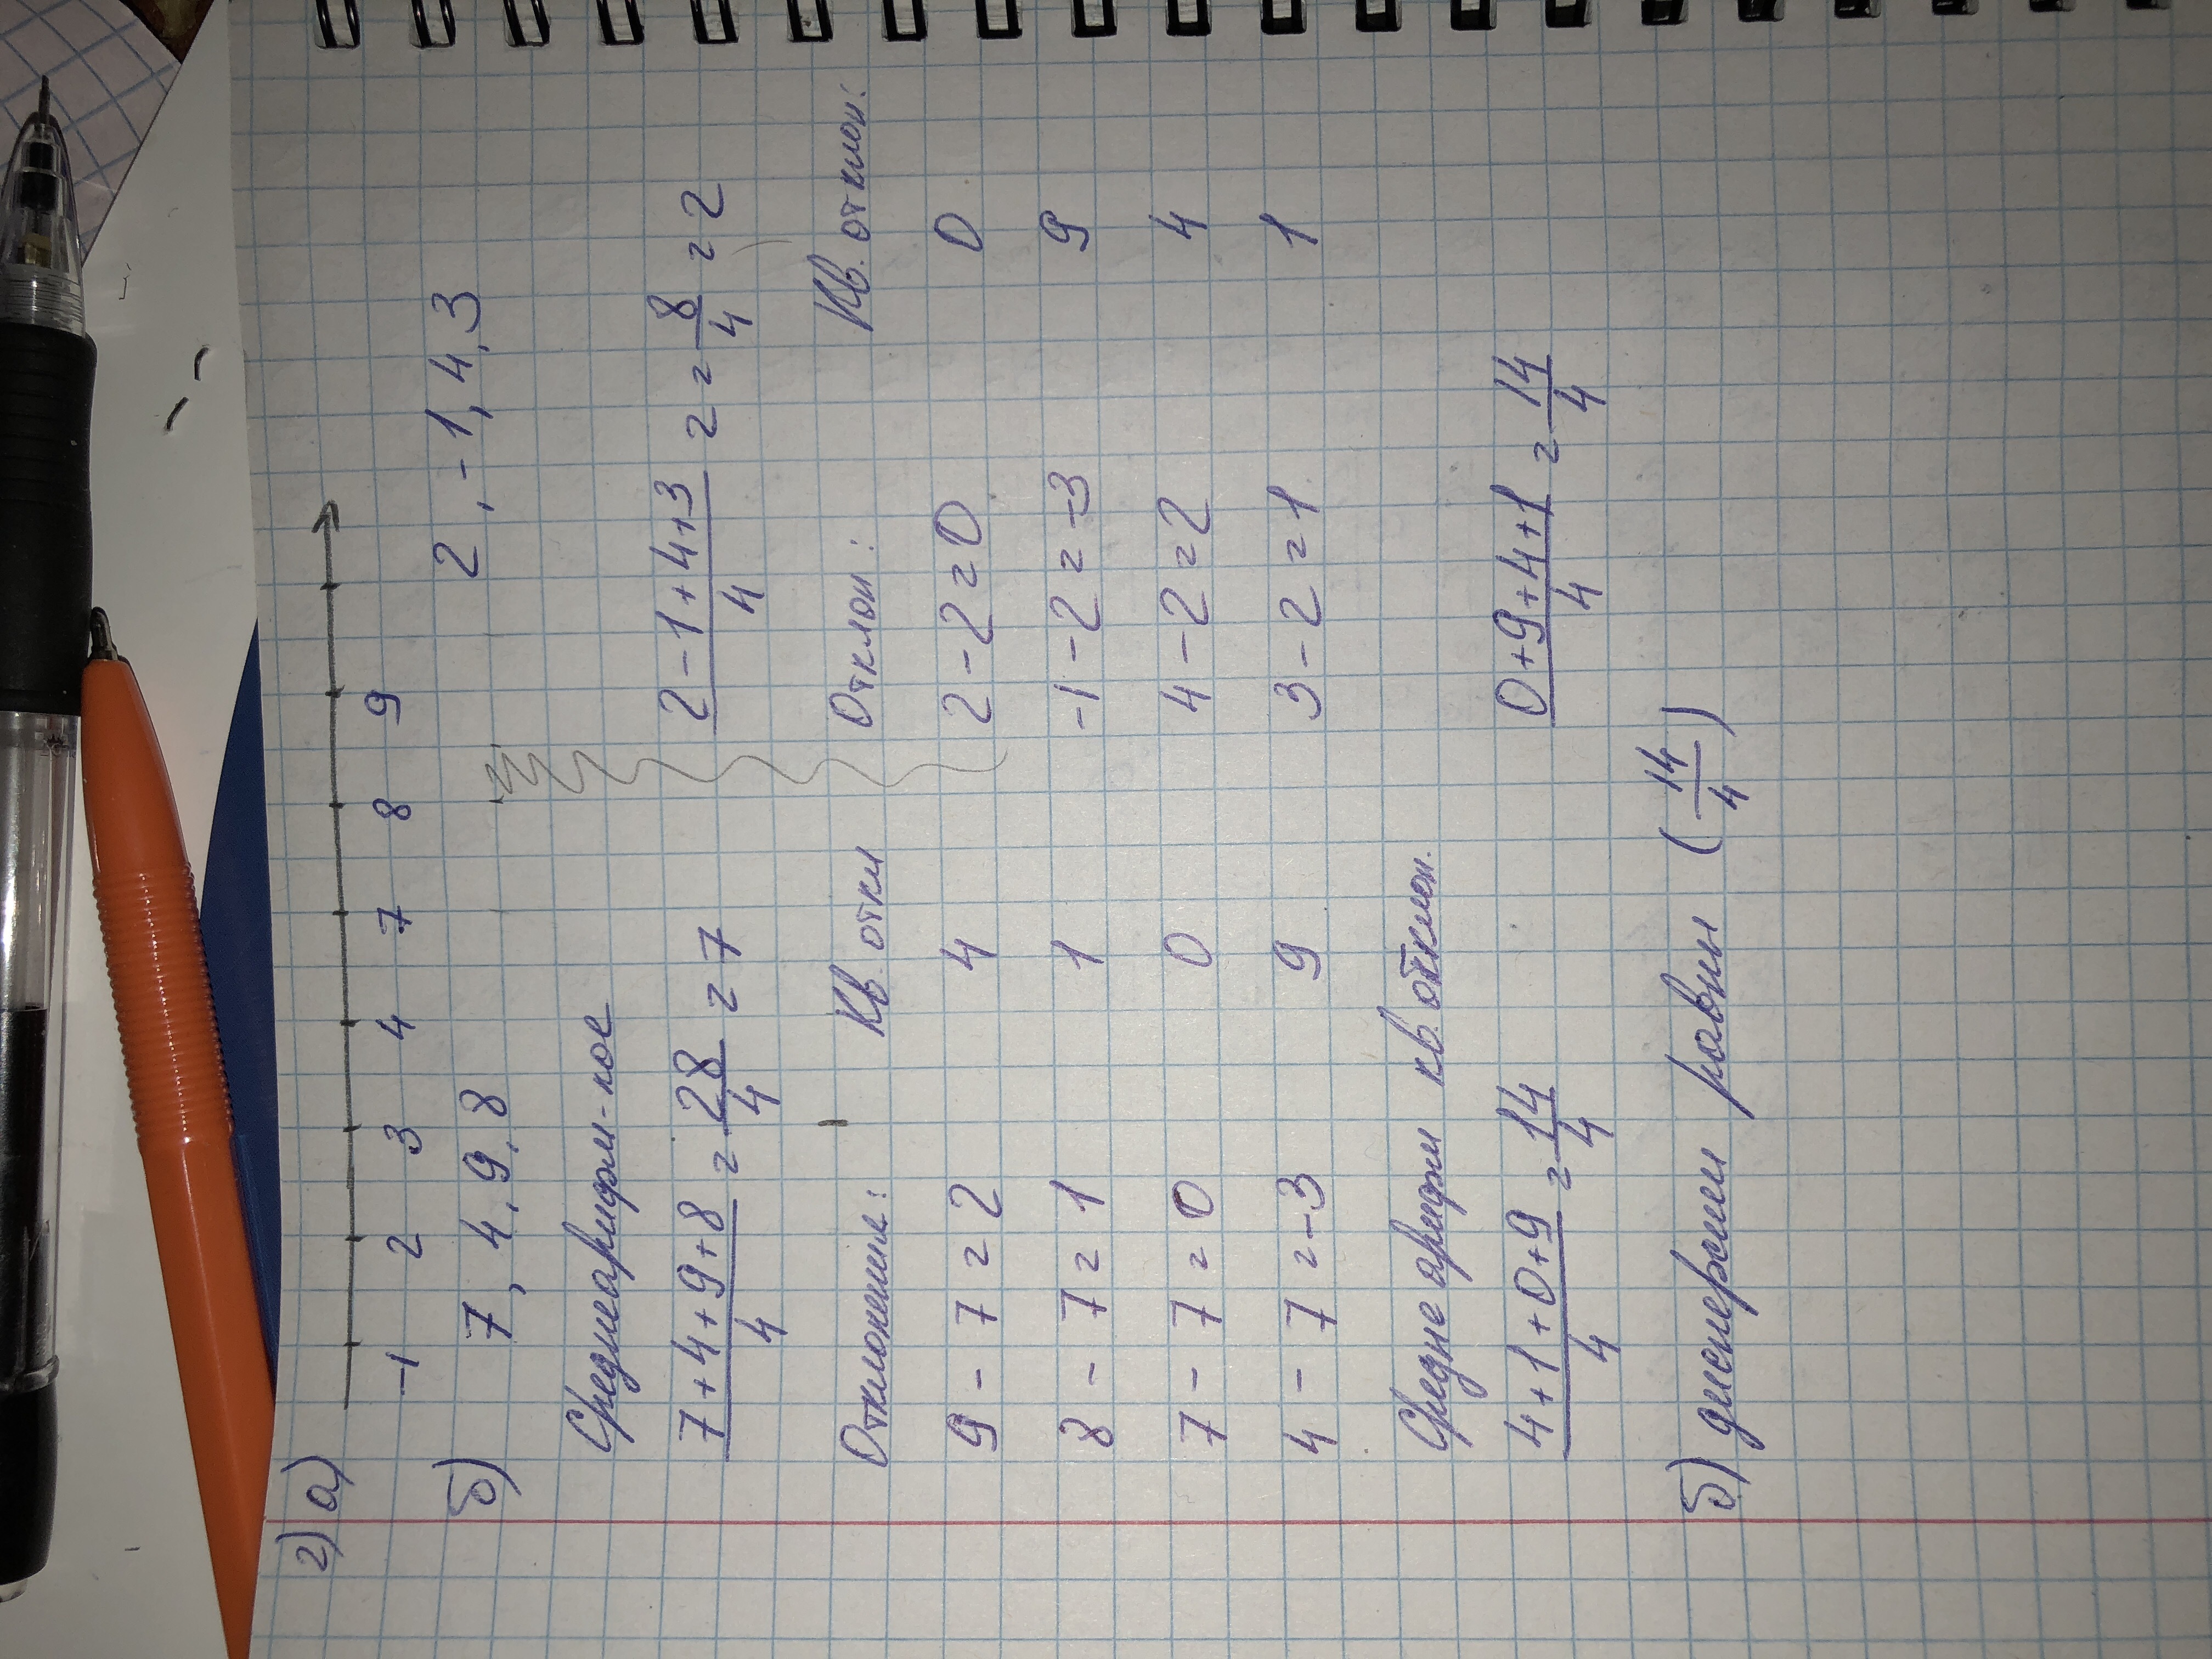 2) а)
-1 2 3 4 7 8 9
б) 7, 4, 9, 8 2, -1, 4, 3
Среднеарифм-кое
7+4+9+8/4 = 28/4 = 7 2-1+4+3/4 = = 8/4 = 2
Отклонения: Кв. откл Отклон: Кв. отклон:
9 - 7 = 2 4 2 - 2 = 0 0
8 - 7 = 1 1 -1 - 2 = -3 9
7 - 7 = 0 0 4 - 2 = 2 4
4 - 7 = -3 9 3 - 2 = 1 1
Средне арифм кв. отклон.
4+1+0+9/4 = 14/4 0+9+4+1/4 = 14/4
б) дисперсии равны (14/4)